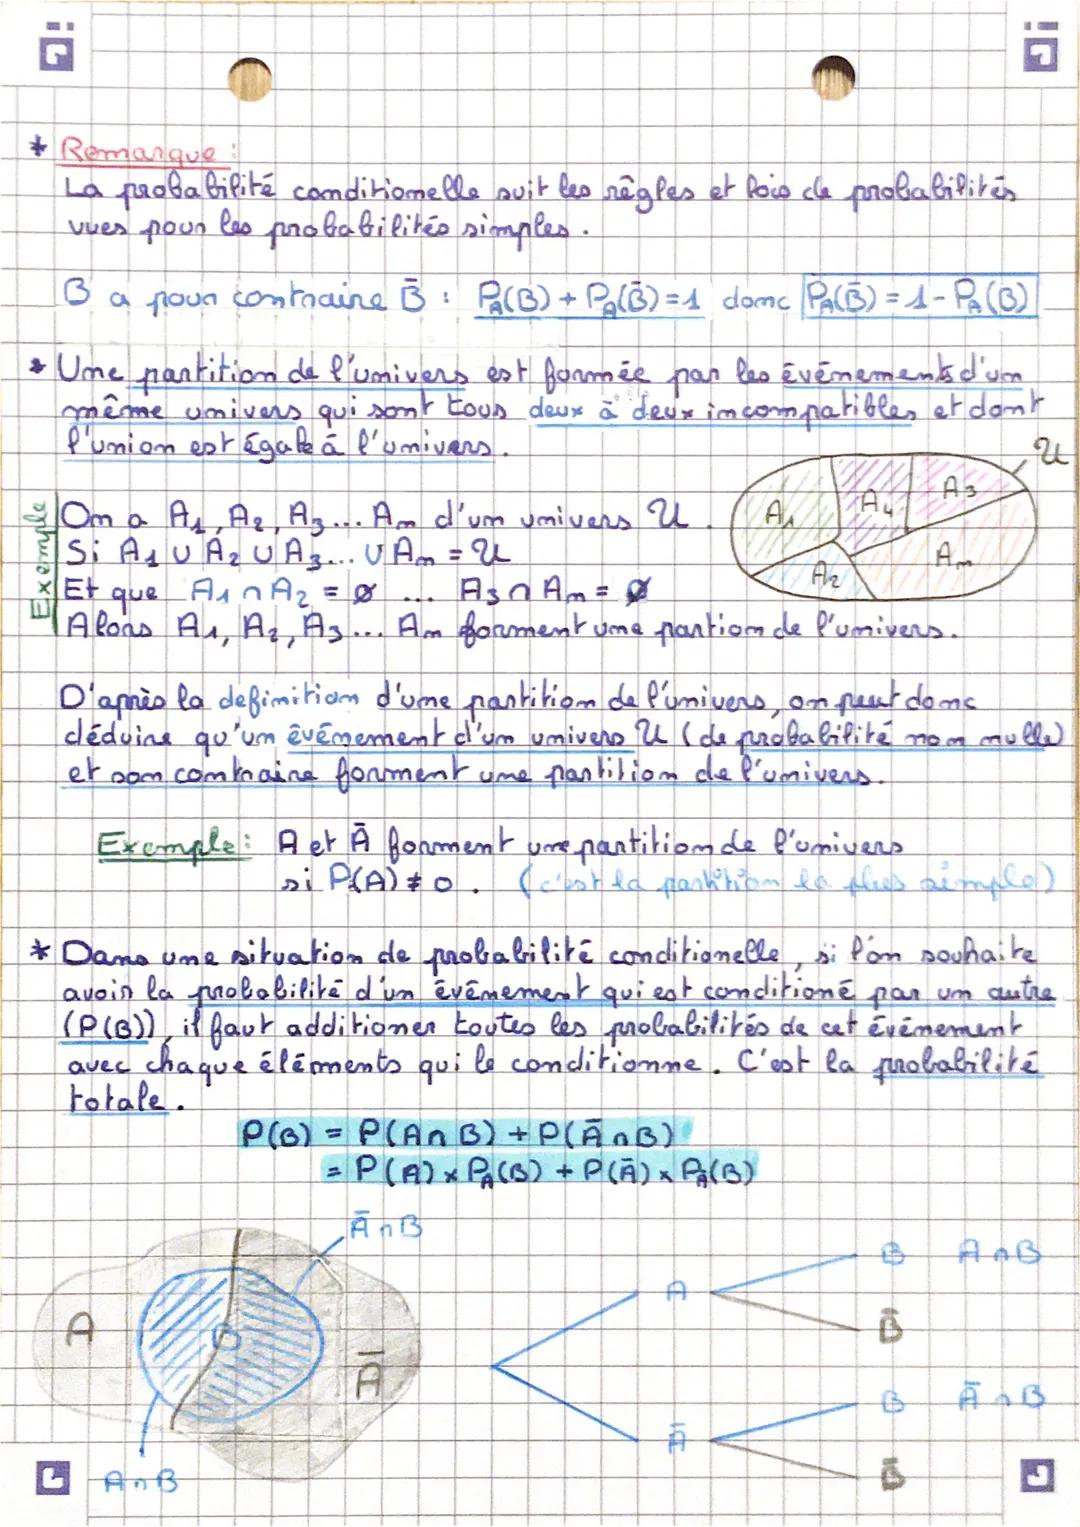 * Remarque :
La probabilité conditionelle suit les règles et lois de probabilités
vues pour les probabilités simples.
B a pour contraire B̄ : P_A(B) + P_A(B̄) = 1 donc P_A(B̄) = 1 - P_A(B)
* Une partition de l'univers est formée par les événements d'un
même univers qui sont tous deux à deux incompatibles et dont
l'union est égale à l'univers.
U
A1 A4 A3
A2 An
Exemple
On a A1, A2, A3... An d'un univers U.
Si A1 ∪ A2 ∪ A3... ∪ An = U
Et que A1 ∩ A2 = ∅ ... A3 ∩ An = ∅
Alors A1, A2, A3... An forment une partion de l'univers.
D'après la definition d'une partition de l'univers, on peut donc
déduire qu'un événement d'un univers U (de probabilité non nulle)
et son contraire forment une partition de l'univers.
Exemple : A et Ā forment une partition de l'univers
si P(A) ≠ 0. (c'est la partition la plus simple)
* Dans une situation de probabilité conditionelle, si l'on souhaite
avoir la probabilité d'un événement qui est conditioné par un autre
(P(B)), il faut additioner toutes les probabilités de cet événement
avec chaque éléments qui le conditionne. C'est la probabilité
totale.
P(B) = P(A ∩ B) + P(Ā ∩ B)
= P(A) × P_A(B) + P(Ā) × P_Ā(B)
Ā ∩ B
A
B
Ā
A ∩ B
B A ∩ B
A
B̄
B Ā ∩ B
Ā
B̄